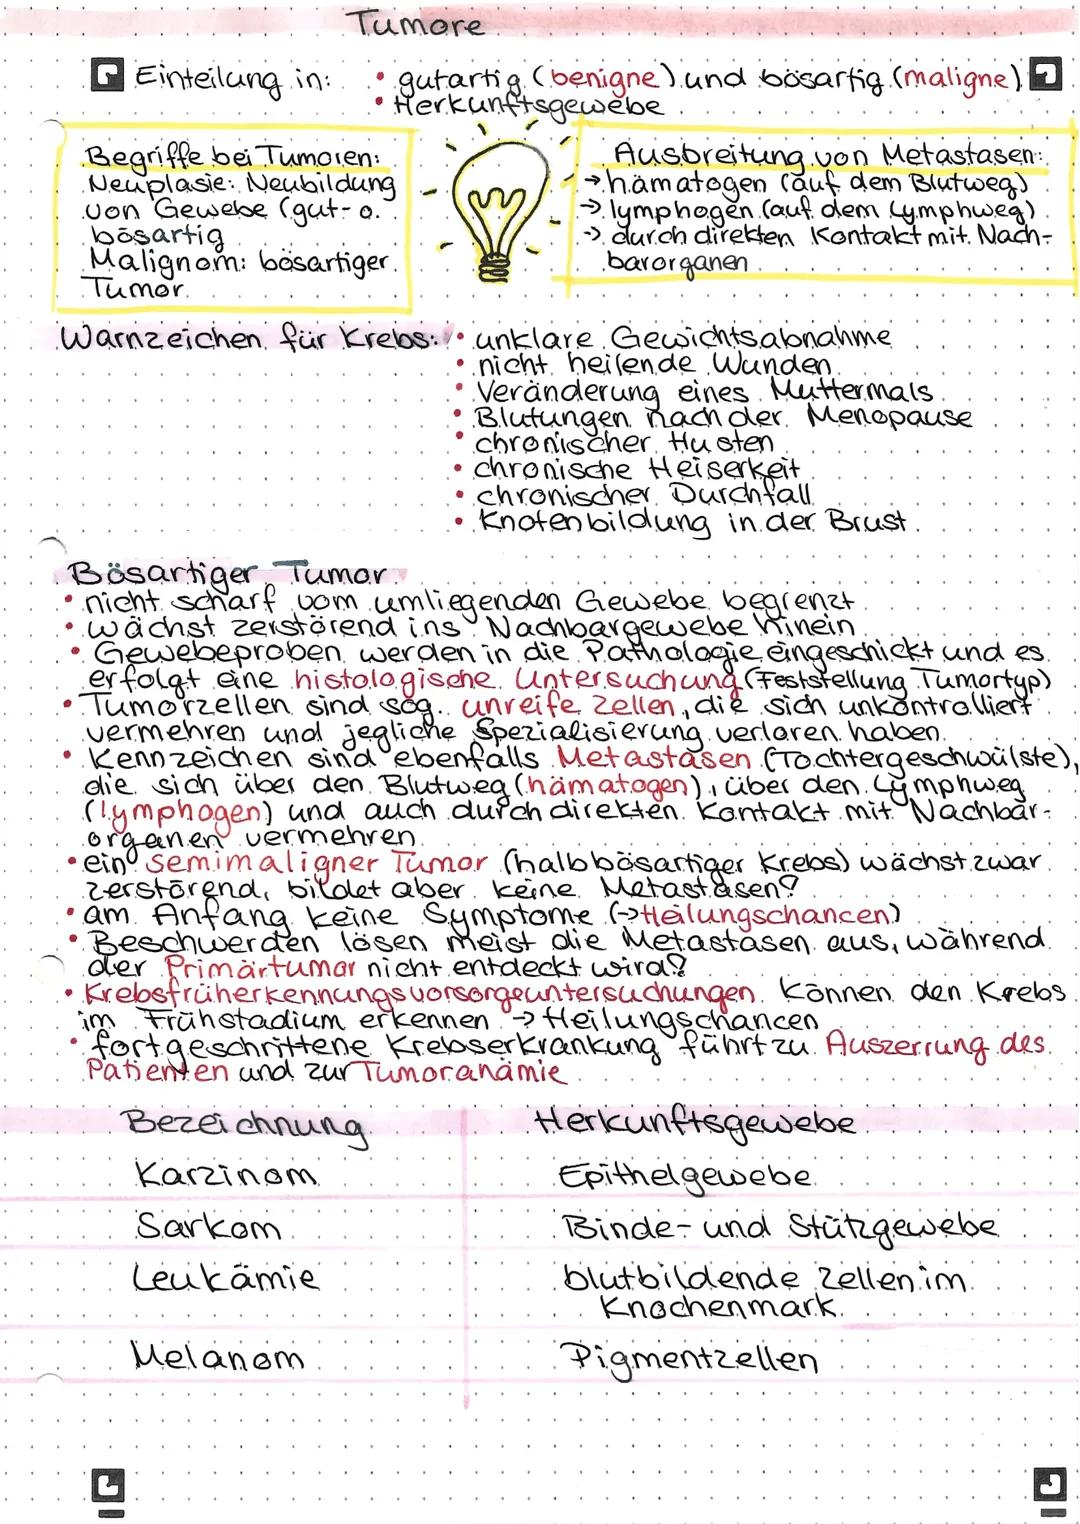 Tumore
Einteilung in: • gutartig (benigne) und bösartig (maligne)
• Herkunftsgewebe
Begriffe bei Tumoren:
Neuplasie: Neubildung
von Gewebe (gut- o.
bösartig
Malignom: bösartiger
Tumor
Ausbreitung von Metastasen:
→ hämatogen (auf dem Blutweg)
→ lymphogen (auf dem Lymphweg)
→ durch direkten Kontakt mit Nach-
barorganen
Warnzeichen für Krebs: • unklare Gewichtsabnahme
• nicht heilende Wunden
• Veränderung eines Muttermals
• Blutungen nach der Menopause
• chronischer Husten
• chronische Heiserkeit
• chronischer Durchfall
• Knotenbildung in der Brust
Bösartiger Tumor
• nicht scharf vom umliegenden Gewebe begrenzt
• wächst zerstörend ins Nachbargewebe hinein
• Gewebeproben werden in die Pathologie eingeschickt und es
erfolgt eine histologische Untersuchung (Feststellung Tumortyp)
• Tumorzellen sind sog. unreife Zellen, die sich unkontrolliert
vermehren und jegliche Spezialisierung verloren haben
• Kennzeichen sind ebenfalls Metastasen (Tochtergeschwülste),
die sich über den Blutweg (hämatogen), über den Lymphweg
(lymphogen) und auch durch direkten Kontakt mit Nachbar-
organen vermehren
• ein semimaligner Tumor (halbbösartiger Krebs) wächst zwar
zerstörend, bildet aber keine Metastasen?
• am Anfang keine Symptome (→Heilungschancen)
• Beschwerden lösen meist die Metastasen aus, während
der Primärtumor nicht entdeckt wird?
• Krebsfrüherkennungsvorsorgeuntersuchungen können den Krebs
im Frühstadium erkennen → Heilungschancen
• fortgeschrittene Krebserkrankung führt zu Auszerrung des
Patienten und zur Tumoranämie
Bezeichnung Herkunftsgewebe
Karzinom Epithelgewebe
Sarkom Binde- und Stützgewebe
Leukämie blutbildende Zellen im
Knochenmark
Melanom Pigmentzellen